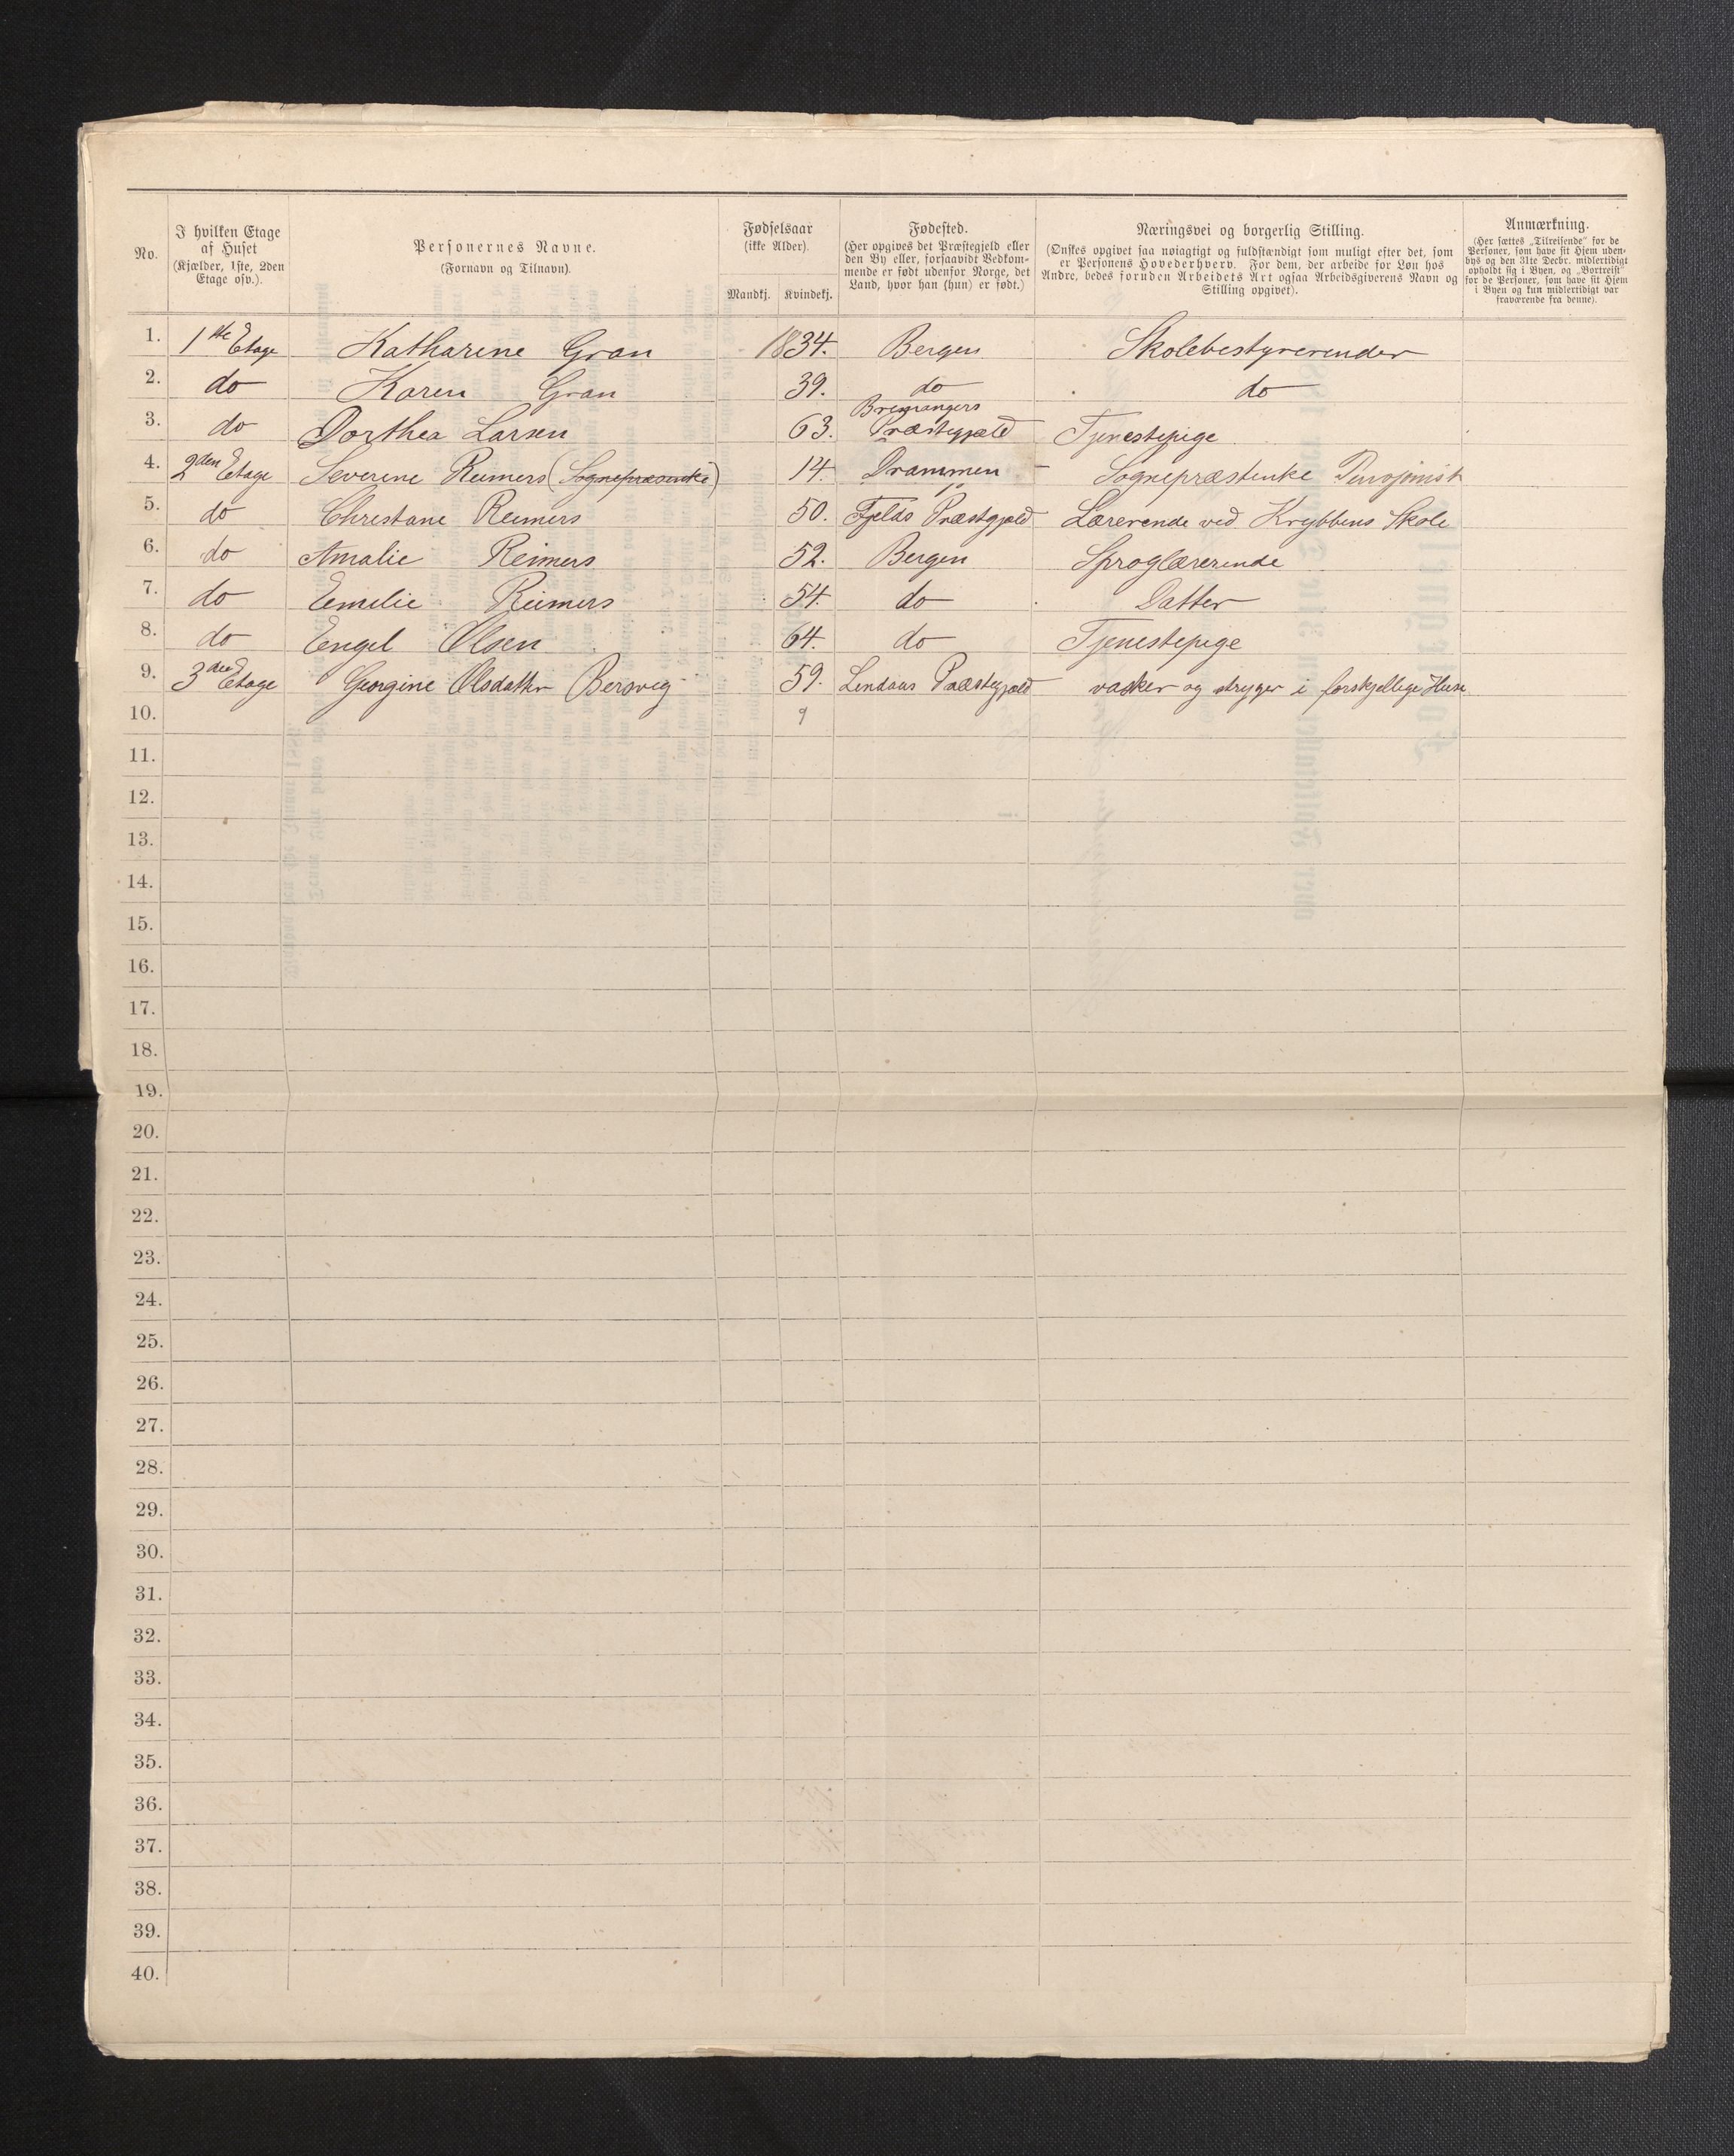 No.
I hvilken Etage
af Huset
(Kjælder, 1ste, 2den
Etage osv.).
Personernes Navne.
(Fornavn og Tilnavn).
Fødselsaar
(ikke Alder).
Mandkj. Kvindekj.
Fødested.
(Her opgives det Præstegjeld eller
den By eller, forsaavidt Vedkom-
mende er født udenfor Norge, det
Land, hvor han (hun) er født.)
Næringsvei og borgerlig Stilling.
(Ønskes opgivet saa nøiagtigt og fuldstændigt som muligt efter det, som
er Personens Hovederhverv. For dem, der arbeide for Løn hos
Andre, bedes foruden Arbeidets Art ogsaa Arbeidsgiverens Navn og
Stilling opgivet).
Anmærkning.
(Her sættes „Tilreisende" for de
Personer, som have sit Hjem uden-
bys og den 31te Decbr. midlertidigt
opholdt sig i Byen, og „Bortreist"
for de Personer, som have sit Hjem
i Byen og kun midlertidigt var
fraværende fra denne).
1. 1ste Etage Katharine Gran 1834. Bergen Skolebestyrerinder
2. do Karen Gran 39. do do
3. do Dorthea Larsen 63. Bremangers Præstegjæld Tjenestepige
4. 2den Etage Severine Reimers (Sognepræstenke) 14. Drammen - Sognepræstenke Pensjonist
5. do Christane Reimers 50. Fjelds Præstgjæld Lærerinde ved Krybbens Skole
6. do Amalie Reimers 52. Bergen Sproglærerinde
7. do Emilie Reimers 54. do Datter
8. do Engel Olsen 64. do Tjenestepige
9. 3den Etage Georgine Olsdatter Bersvig 59. Lindaas Præstegjæld vasker og stryger i forskjellige Huse
10. 9
11.
12.
13.
14.
15.
16.
17.
18.
19.
20.
21.
22.
23.
24.
25.
26.
27.
28.
29.
30.
31.
32.
33.
34.
35.
36.
37.
38.
39.
40.